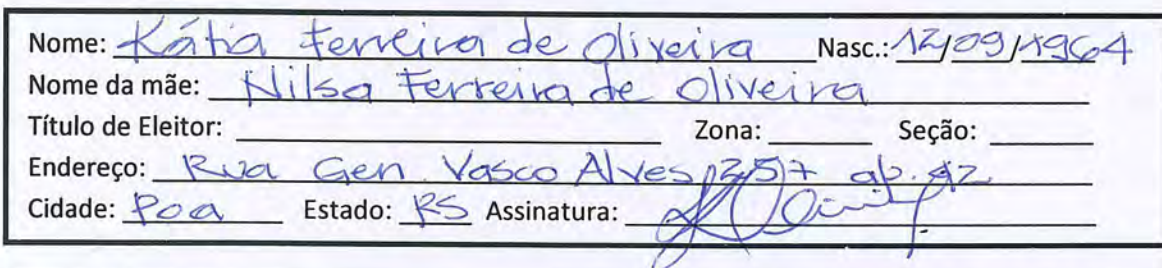 Nome: Kátia Ferreira de Oliveira Nasc.: 12/09/1964
Nome da mãe: Nilsa Ferreira de Oliveira
Título de Eleitor: Zona: Seção:
Endereço: Rua Gen Vasco Alves, 257 ap. 42
Cidade: Poa Estado: RS Assinatura: